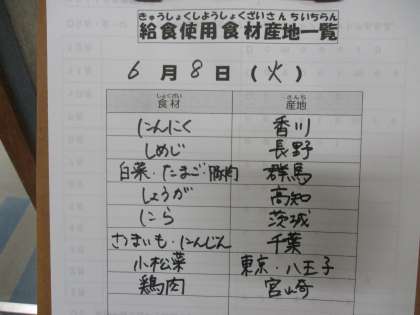 きゅうしょくしようしょくざいさんちいちらん
給食使用食材産地一覧
6月8日(火)
しょくざい さんち
食材 産地
にんにく 香川
しめじ 長野
白菜・たまご・豚肉 群馬
しょうが 高知
にら 茨城
さつまいも・にんじん 千葉
小松菜 東京・八王子
鶏肉 宮崎